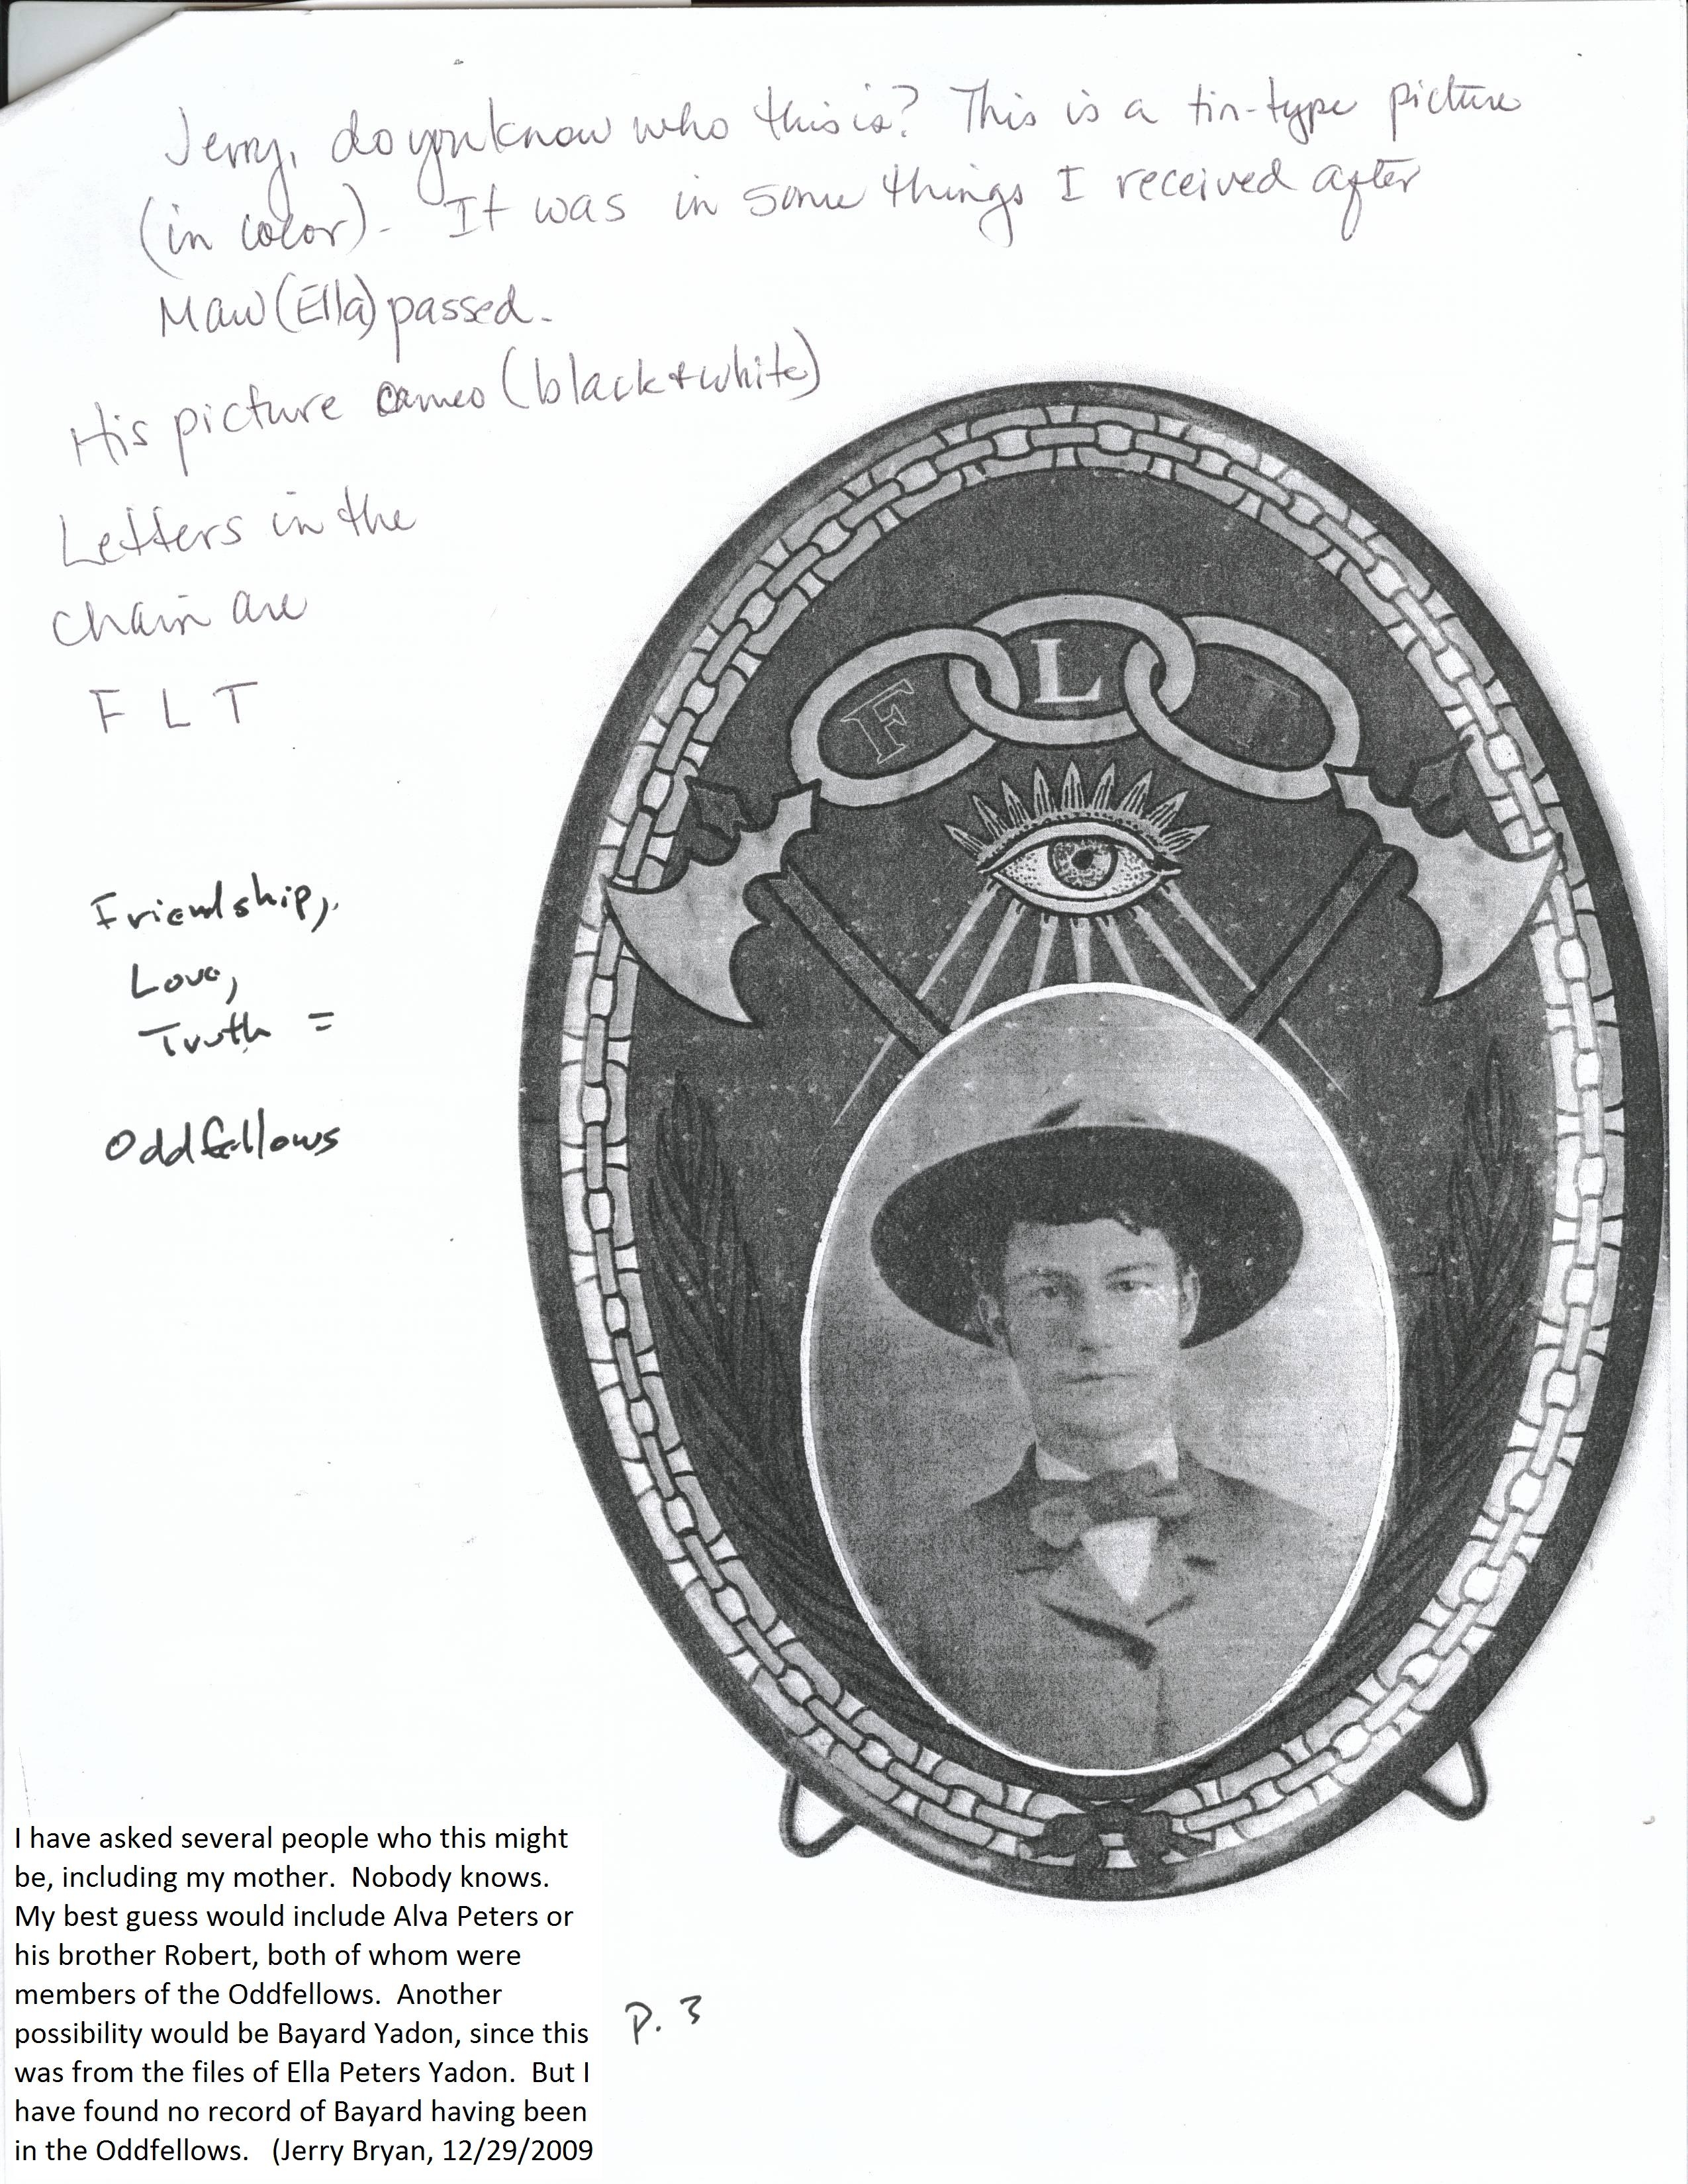 Jerry, do you know who this is? This is a tin-type picture
(in color). It was in some things I received after
Maw (Ella) passed.
His picture cameo (black & white)
Letters in the
chain are
F L T
F L T
Friendship,
Love,
Truth =
Oddfellows
I have asked several people who this might
be, including my mother.  Nobody knows.
My best guess would include Alva Peters or
his brother Robert, both of whom were
members of the Oddfellows.  Another
possibility would be Bayard Yadon, since this
was from the files of Ella Peters Yadon.  But I
have found no record of Bayard having been
in the Oddfellows.   (Jerry Bryan, 12/29/2009
P. 3